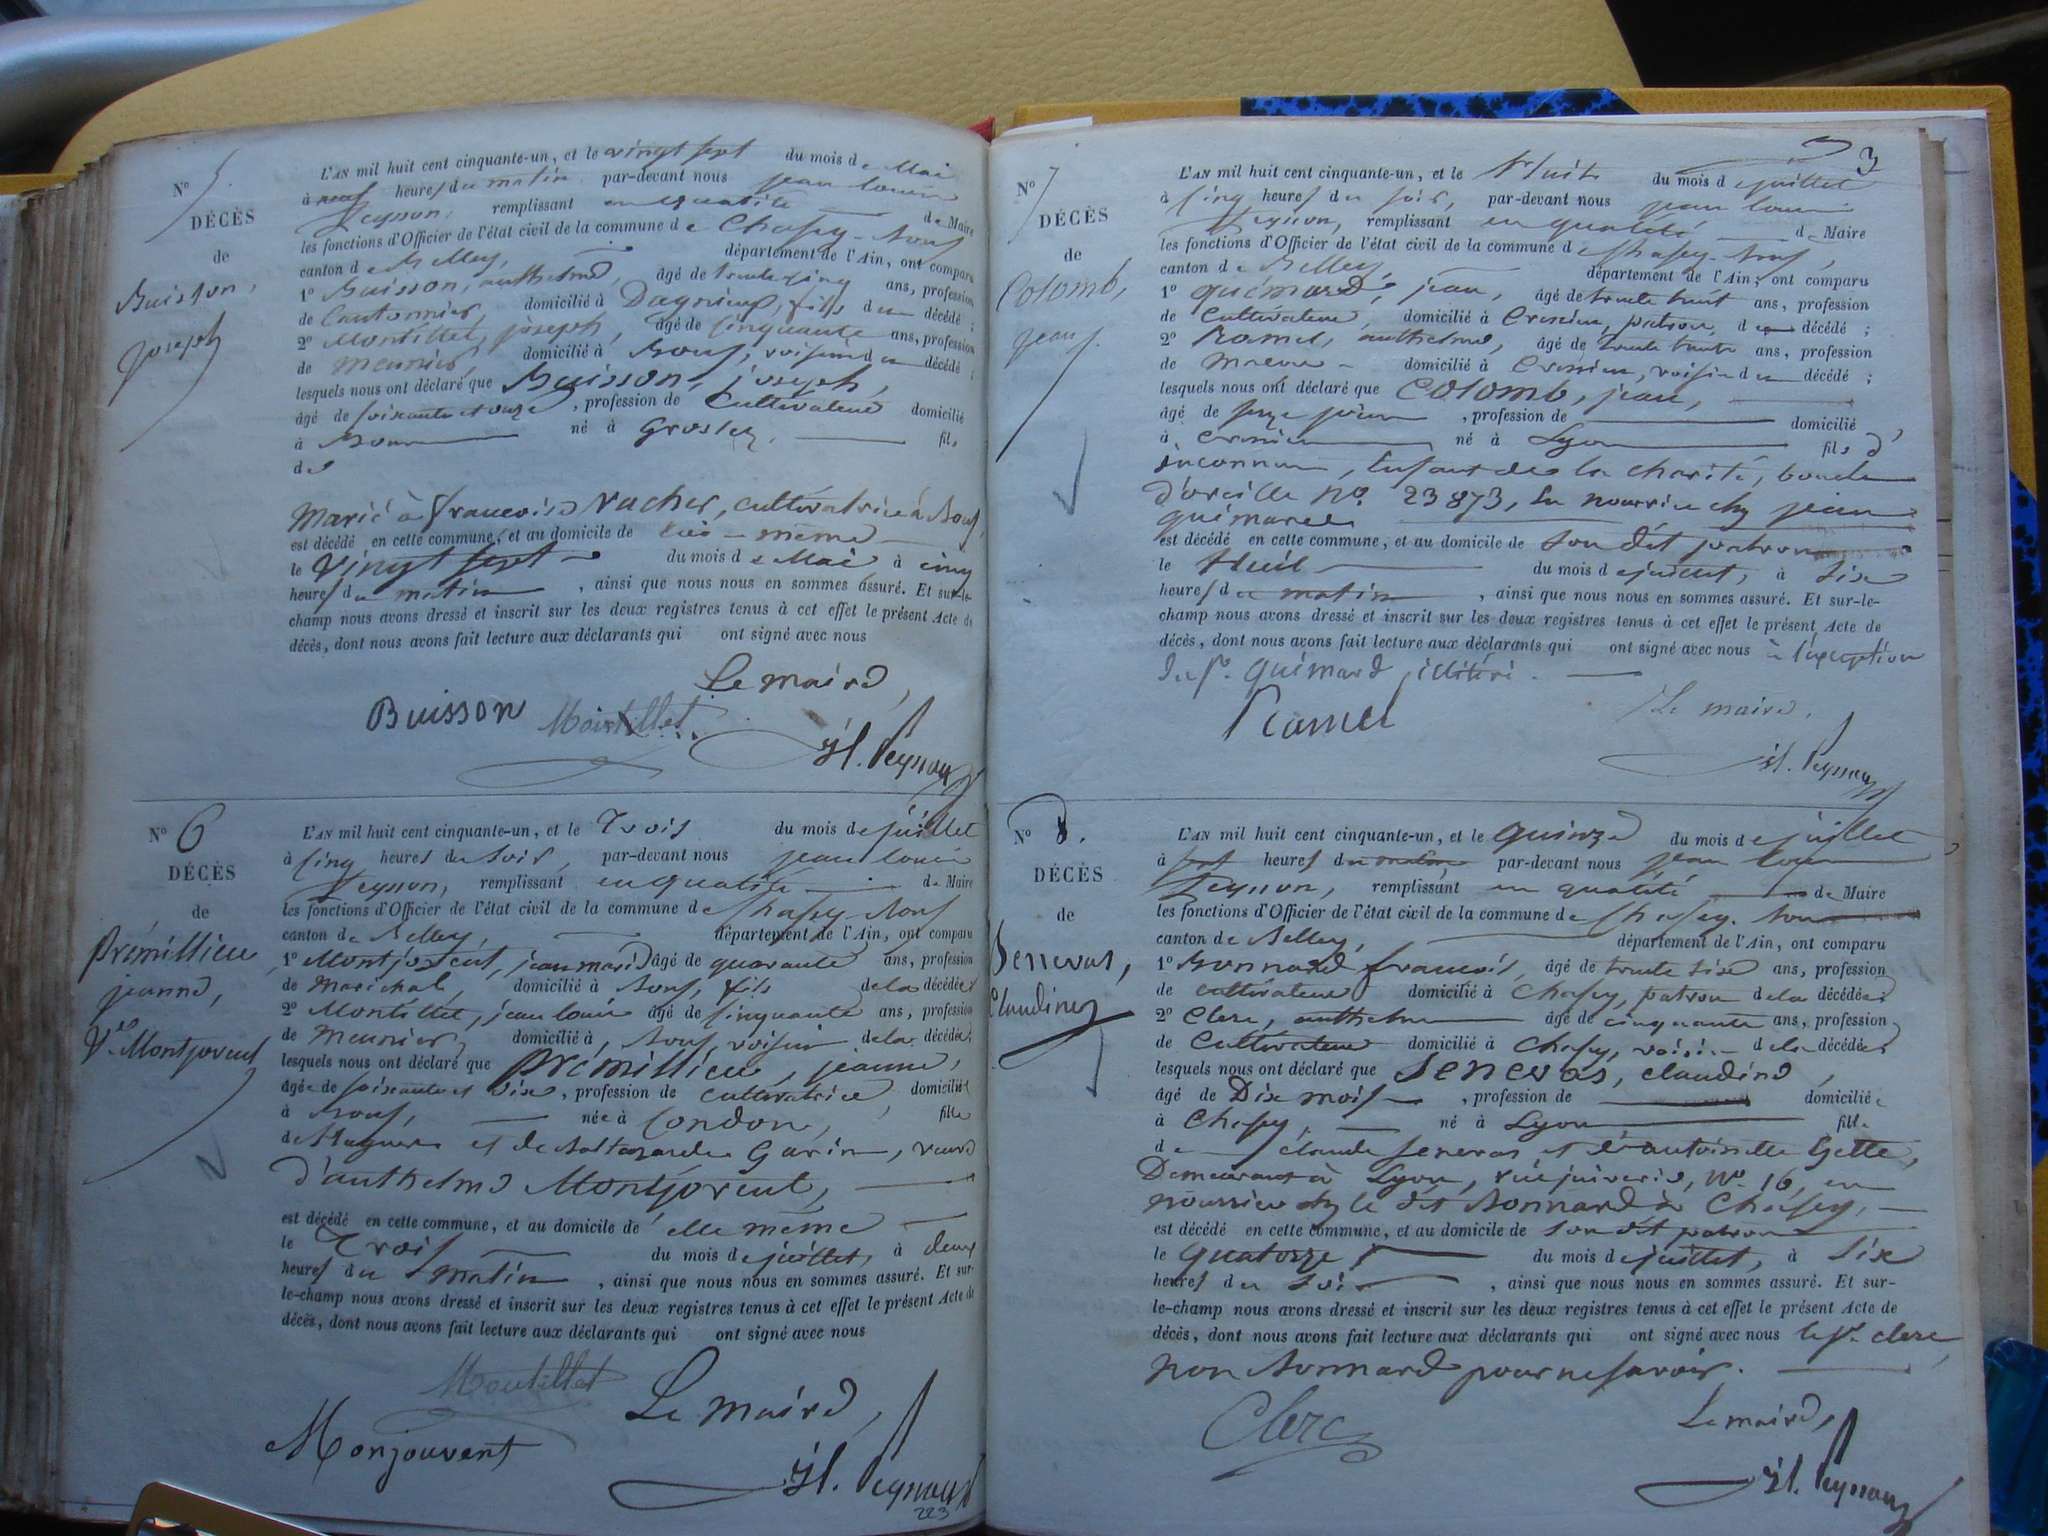 N° 5.
DÉCÈS
de
Buisson,
joseph
L'AN mil huit cent cinquante-un, et le vingt sept du mois de Mai
à neuf heures du matin par-devant nous jean louis
Peysson, remplissant en qualité de Maire
les fonctions d'Officier de l'état civil de la commune de Chasey-Bons
canton de Belley, département de l'Ain, ont comparu
1° Buisson, anthelme, âgé de trente cinq ans, profession
de Cantonnier, domicilié à Dagnieux, fils du décédé ;
2° Montillet, joseph, âgé de cinquante ans, profession
de meunier, domicilié à Bons, voisin du décédé ;
lesquels nous ont déclaré que Buisson, joseph,
âgé de soixante et onze, profession de Cultivateur domicilié
à Bons né à Groslez, fils
de
Marié à françoise Vucher, cultivatrice à Bons,
est décédé en cette commune, et au domicile de lui-même
le Vingt sept du mois de Mai à cinq
heures du matin, ainsi que nous nous en sommes assuré. Et sur-le-
champ nous avons dressé et inscrit sur les deux registres tenus à cet effet le présent Acte de
décès, dont nous avons fait lecture aux déclarants qui ont signé avec nous
Le maire,
Buisson Montillet
Jl. Peysson
N° 6
DÉCÈS
de
Prémillieu
jeanne,
Ve Montjovent
L'AN mil huit cent cinquante-un, et le Trois du mois de juillet
à cinq heures du soir, par-devant nous jean louis
Peysson, remplissant en qualité de Maire
les fonctions d'Officier de l'état civil de la commune de Chasey-Bons
canton de Belley département de l'Ain, ont comparu
1° Montjovent, jean marie âgé de quarante ans, profession
de Maréchal, domicilié à Bons, fils de la décédée
2° Montillet, jean louis âgé de cinquante ans, profession
de Meunier, domicilié à Bons, voisin de la décédée ;
lesquels nous ont déclaré que Prémillieu, jeanne,
âgée de soixante et dix, profession de cultivatrice, domiciliée
à Bons, née à Condon, fille
de et de Baltazarde Garin, veuve
d'anthelme Montjovent,
est décédé en cette commune, et au domicile de elle même
le Trois du mois de juillet, à deux
heures du matin, ainsi que nous nous en sommes assuré. Et sur-
le-champ nous avons dressé et inscrit sur les deux registres tenus à cet effet le présent Acte de
décès, dont nous avons fait lecture aux déclarants qui ont signé avec nous
Montillet Le Maire,
Monjouvent
Jl. Peysson
223
3
N° 7
DÉCÈS
de
Colomb,
jean.
L'AN mil huit cent cinquante-un, et le huit du mois de juillet
à cinq heures du soir, par-devant nous jean louis
Peysson, remplissant en qualité de Maire
les fonctions d'Officier de l'état civil de la commune de Chasey-Bons,
canton de Belley, département de l'Ain, ont comparu
1° Guimard, jean, âgé de trente huit ans, profession
de Cultivateur, domicilié à Cressieu, patron du décédé ;
2° Ramel, anthelme, âgé de trente ans, profession
de domicilié à Cressieu, voisin du décédé ;
lesquels nous ont déclaré que Colomb, jean,
âgé de seize jours, profession de domicilié
à Cressieu né à Lyon fils d'
inconnu, Enfant de la charité, boucle
d'oreille No. 23873, En nourrice chez jean
Guimard
est décédé en cette commune, et au domicile de son dit patron
le Huit du mois de juillet, à six
heures du matin, ainsi que nous nous en sommes assuré. Et sur-le-
champ nous avons dressé et inscrit sur les deux registres tenus à cet effet le présent Acte de
décès, dont nous avons fait lecture aux déclarants qui ont signé avec nous à l'exception
du Sr. Guimard illitéré.
Ramel
Le maire,
Jl. Peysson
N° 8.
DÉCÈS
de
Senevas,
Claudine
L'AN mil huit cent cinquante-un, et le quinze du mois de juillet
à sept heures du matin, par-devant nous jean louis
Peysson, remplissant en qualité de Maire
les fonctions d'Officier de l'état civil de la commune de Chasey-Bons
canton de Belley, département de l'Ain, ont comparu
1° Bonnard françois, âgé de trente six ans, profession
de cultivateur domicilié à Chasey, patron de la décédée ;
2° Clerc, anthelme âgé de cinquante ans, profession
de Cultivateur domicilié à Chasey, voisin de la décédée
lesquels nous ont déclaré que Senevas, claudine,
âgé de Dix mois, profession de domiciliée
à Chasey, né à Lyon fille
de Claude Senevas et d'antoinette Gette,
Demeurant à Lyon, rue juiverie, No. 16, en
nourrice chez le dit Bonnard à Chasey,
est décédé en cette commune, et au domicile de son dit patron
le quatorze du mois de juillet, à six
heures du soir, ainsi que nous nous en sommes assuré. Et sur-
le-champ nous avons dressé et inscrit sur les deux registres tenus à cet effet le présent Acte de
décès, dont nous avons fait lecture aux déclarants qui ont signé avec nous le Sr. clerc,
non Bonnard pour ne savoir.
Clerc
Le maire,
Jl. Peysson